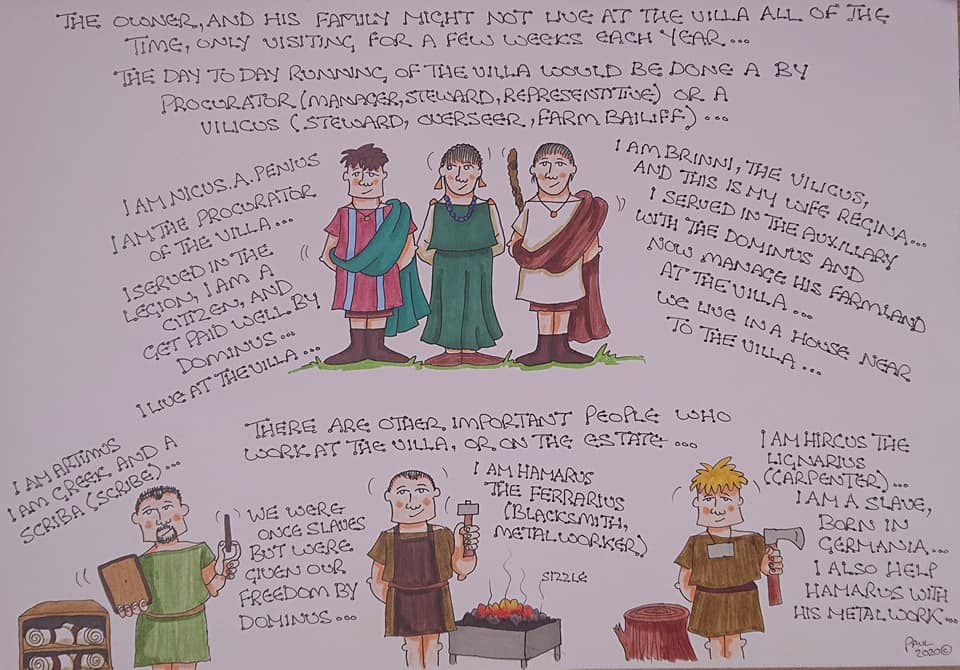 THE OWNER, AND HIS FAMILY MIGHT NOT LIVE AT THE VILLA ALL OF THE
TIME, ONLY VISITING FOR A FEW WEEKS EACH YEAR...
THE DAY TO DAY RUNNING OF THE VILLA WOULD BE DONE A BY
PROCURATOR (MANAGER, STEWARD, REPRESENTITIVE) OR A
VILICUS (STEWARD, OVERSEER, FARM BAILIFF)...
I AM NICUS. A. PENIUS
I AM THE PROCURATOR
OF THE VILLA...
I SERVED IN THE
LEGION, I AM A
CITIZEN, AND
GET PAID WELL BY
DOMINUS...
I LIVE AT THE VILLA...
I AM BRINNI, THE VILICUS,
AND THIS IS MY WIFE REGINA...
I SERVED IN THE AUXILLARY
WITH THE DOMINUS AND
NOW MANAGE HIS FARMLAND
AT THE VILLA...
WE LIVE IN A HOUSE NEAR
TO THE VILLA...
THERE ARE OTHER IMPORTANT PEOPLE WHO
WORK AT THE VILLA, OR ON THE ESTATE...
I AM ARTIMUS
I AM GREEK AND A
SCRIBA (SCRIBE)...
WE WERE
ONCE SLAVES
BUT WERE
GIVEN OUR
FREEDOM BY
DOMINUS...
I AM HAMARUS
THE FERRARIUS
(BLACKSMITH,
METAL WORKER)
SIZZLE
I AM HIRCUS THE
LIGNARIUS
(CARPENTER)...
I AM A SLAVE,
BORN IN
GERMANIA...
I ALSO HELP
HAMARUS WITH
HIS METALWORK...
PAUL
2020©